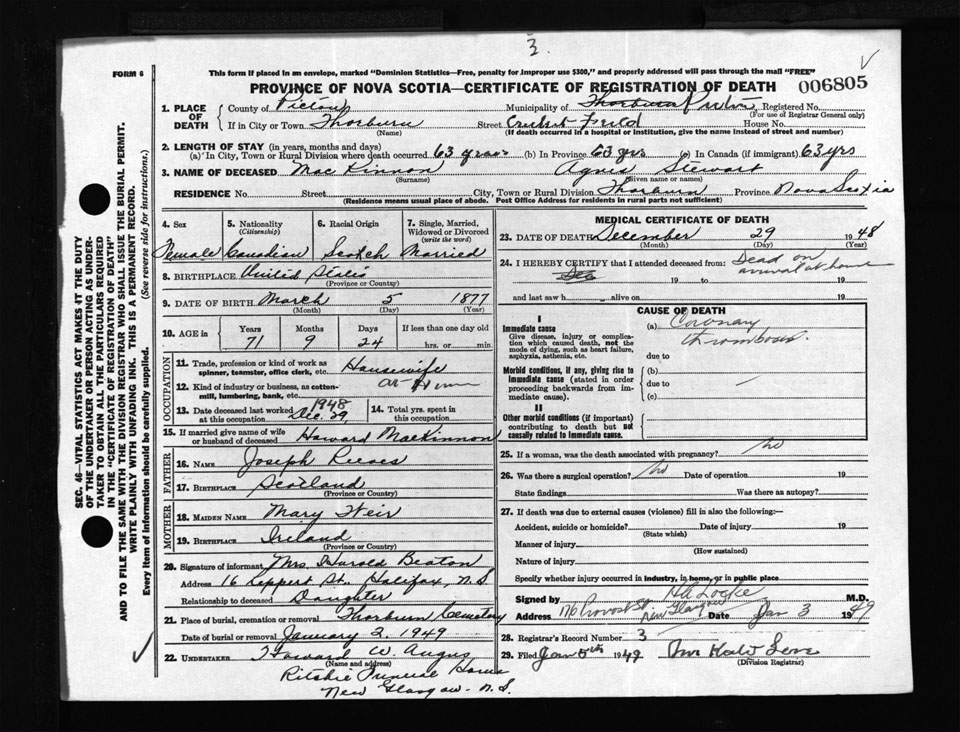 3.
FORM 6
This form if placed in an envelope, marked "Dominion Statistics—Free, penalty for improper use $300," and properly addressed will pass through the mail "FREE"
PROVINCE OF NOVA SCOTIA—CERTIFICATE OF REGISTRATION OF DEATH 006805
1. PLACE OF DEATH
County of Pictou Municipality of Thorburn Registered No.
(For use of Registrar General only)
If in City or Town Thorburn Street House No.
(Name) (If death occurred in a hospital or institution, give the name instead of street and number)
2. LENGTH OF STAY (in years, months and days)
(a) In City, Town or Rural Division where death occurred 63 years (b) In Province 63 yrs (c) In Canada (if immigrant) 63 yrs
3. NAME OF DECEASED Mac Kinnon Agnes Stewart
(Surname) (Given name or names)
RESIDENCE No. Street City, Town or Rural Division Thorburn Province Nova Scotia
(Residence means usual place of abode. Post Office Address for residents in rural parts not sufficient)
4. Sex 5. Nationality (Citizenship) 6. Racial Origin 7. Single, Married, Widowed or Divorced (write the word)
Female Canadian Scotch Married
8. BIRTHPLACE United States
(Province or Country)
9. DATE OF BIRTH March 5 1877
(Month) (Day) (Year)
10. AGE in Years Months Days If less than one day old
71 9 24 hrs. or min.
OCCUPATION
11. Trade, profession or kind of work as spinner, teamster, office clerk, etc. Housewife
12. Kind of industry or business, as cotton-mill, lumbering, bank, etc. at Home
13. Date deceased last worked at this occupation Dec. 29, 1948
14. Total yrs. spent in this occupation
15. If married give name of wife or husband of deceased Howard MacKinnon
FATHER
16. NAME Joseph Reeves
17. BIRTHPLACE Scotland
(Province or Country)
MOTHER
18. MAIDEN NAME Mary Weir
19. BIRTHPLACE Ireland
(Province or Country)
20. Signature of informant Mrs. Harold Beaton
Address 16 Leppert St. Halifax, N.S
Relationship to deceased Daughter
21. Place of burial, cremation or removal Thorburn Cemetery
Date of burial or removal January 2, 1949
22. UNDERTAKER Howard W. Angus
(Name and address)
Ritchie Funeral Home
New Glasgow. N.S.
MEDICAL CERTIFICATE OF DEATH
23. DATE OF DEATH December 29 1948
(Month) (Day) (Year)
24. I HEREBY CERTIFY that I attended deceased from: Dead on
arrival at home
Dec 19 to 19
and last saw h alive on 19
CAUSE OF DEATH
I
Immediate cause
Give disease, injury or complication which caused death, not the mode of dying, such as heart failure, asphyxia, asthenia, etc.
(a) Coronary
thrombosis.
due to
Morbid conditions, if any, giving rise to immediate cause (stated in order proceeding backwards from immediate cause).
(b)
due to
(c)
II
Other morbid conditions (if important) contributing to death but not causally related to immediate cause.
25. If a woman, was the death associated with pregnancy? No
26. Was there a surgical operation? No Date of operation 19
State findings Was there an autopsy?
27. If death was due to external causes (violence) fill in also the following:—
Accident, suicide or homicide? Date of injury 19
(State which)
Manner of injury
(How sustained)
Nature of injury
Specify whether injury occurred in industry, in home, or in public place
Signed by HA Locke M.D.
Address 176 Provost St New Glasgow Date Jan 3 1949
28. Registrar's Record Number 3
29. Filed Jan 5th 1949
(Division Registrar)
SEC. 46—VITAL STATISTICS ACT MAKES IT THE DUTY
OF THE UNDERTAKER OR PERSON ACTING AS UNDER-
TAKER TO OBTAIN ALL THE PARTICULARS REQUIRED
IN THE "CERTIFICATE OF REGISTRATION OF DEATH"
AND TO FILE THE SAME WITH THE DIVISION REGISTRAR WHO SHALL ISSUE THE BURIAL PERMIT.
WRITE PLAINLY WITH UNFADING INK. THIS IS A PERMANENT RECORD.
Every item of information should be carefully supplied. (See reverse side for instructions.)